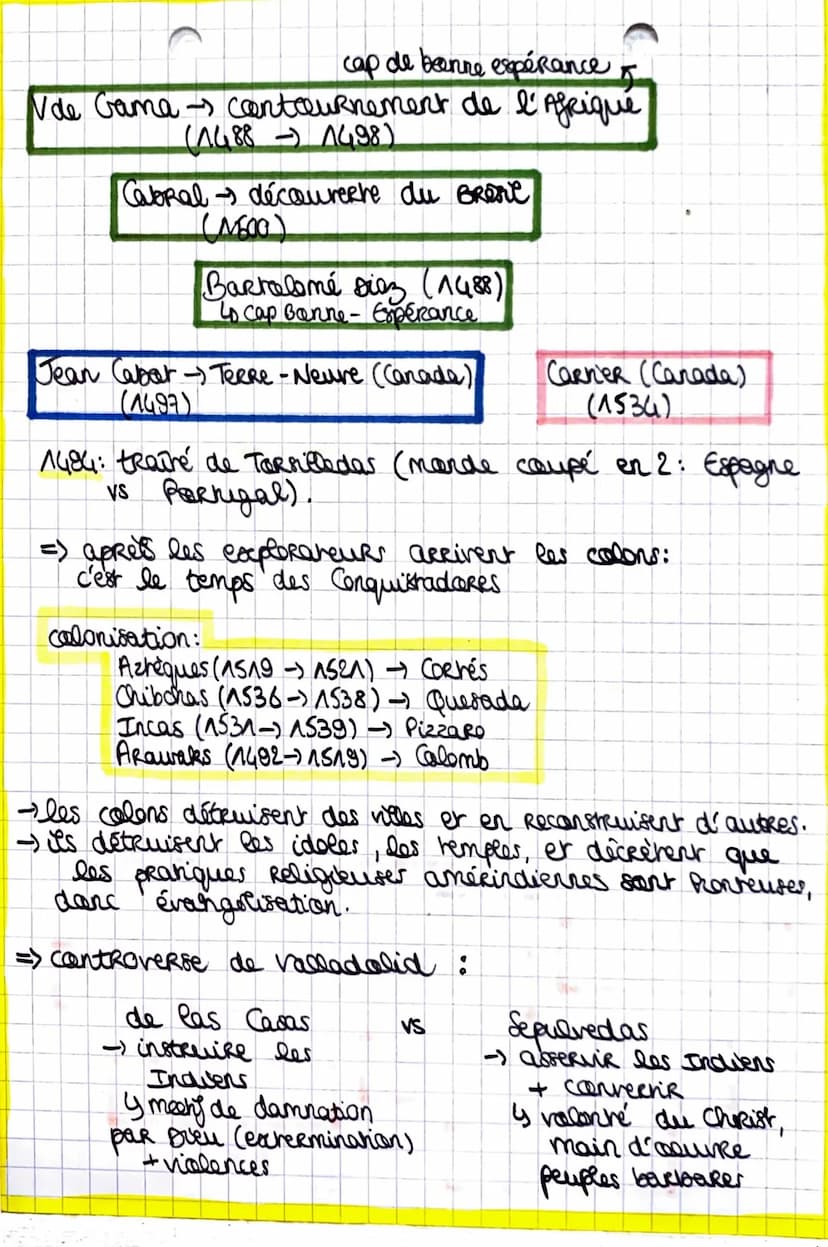 cap de bonne espérance
V de Gama → contournement de l'Afrique
(1488 → 1498)
Cabral → découverte du BRésil
(1500)
Bartolomé Diaz (1488)
↳ cap Bonne-Espérance
Jean Cabot → Terre-Neuve (Canada)
(1497)
Cartier (Canada)
(1534)
1494: traité de Torsilledas (monde coupé en 2 : Espagne
vs Portugal).
=> après les explorateurs arrivent les colons:
c'est le temps des Conquistradores
colonisation:
Aztèques (1519 → 1521) → Cortés
Chibchas (1536 → 1538) → Quesada
Incas (1531 → 1539) → Pizzaro
Arawaks (1492 → 1519) → Colomb
→ les colons détruisent des villes et en reconstruisent d'autres.
→ ils détruisent les idoles, les temples, et décrètent que
les pratiques religieuses amérindiennes sont honteuses,
donc évangélisation.
=> controverse de Valladolid :
de las Casas vs Sepulvedas
→ instruire les
Indiens
↳ motif de damnation
par Dieu (extermination)
+ violences
→ asservir les Indiens
+ convertir
↳ volonté du Christ,
main d'oeuvre
peuples barbares